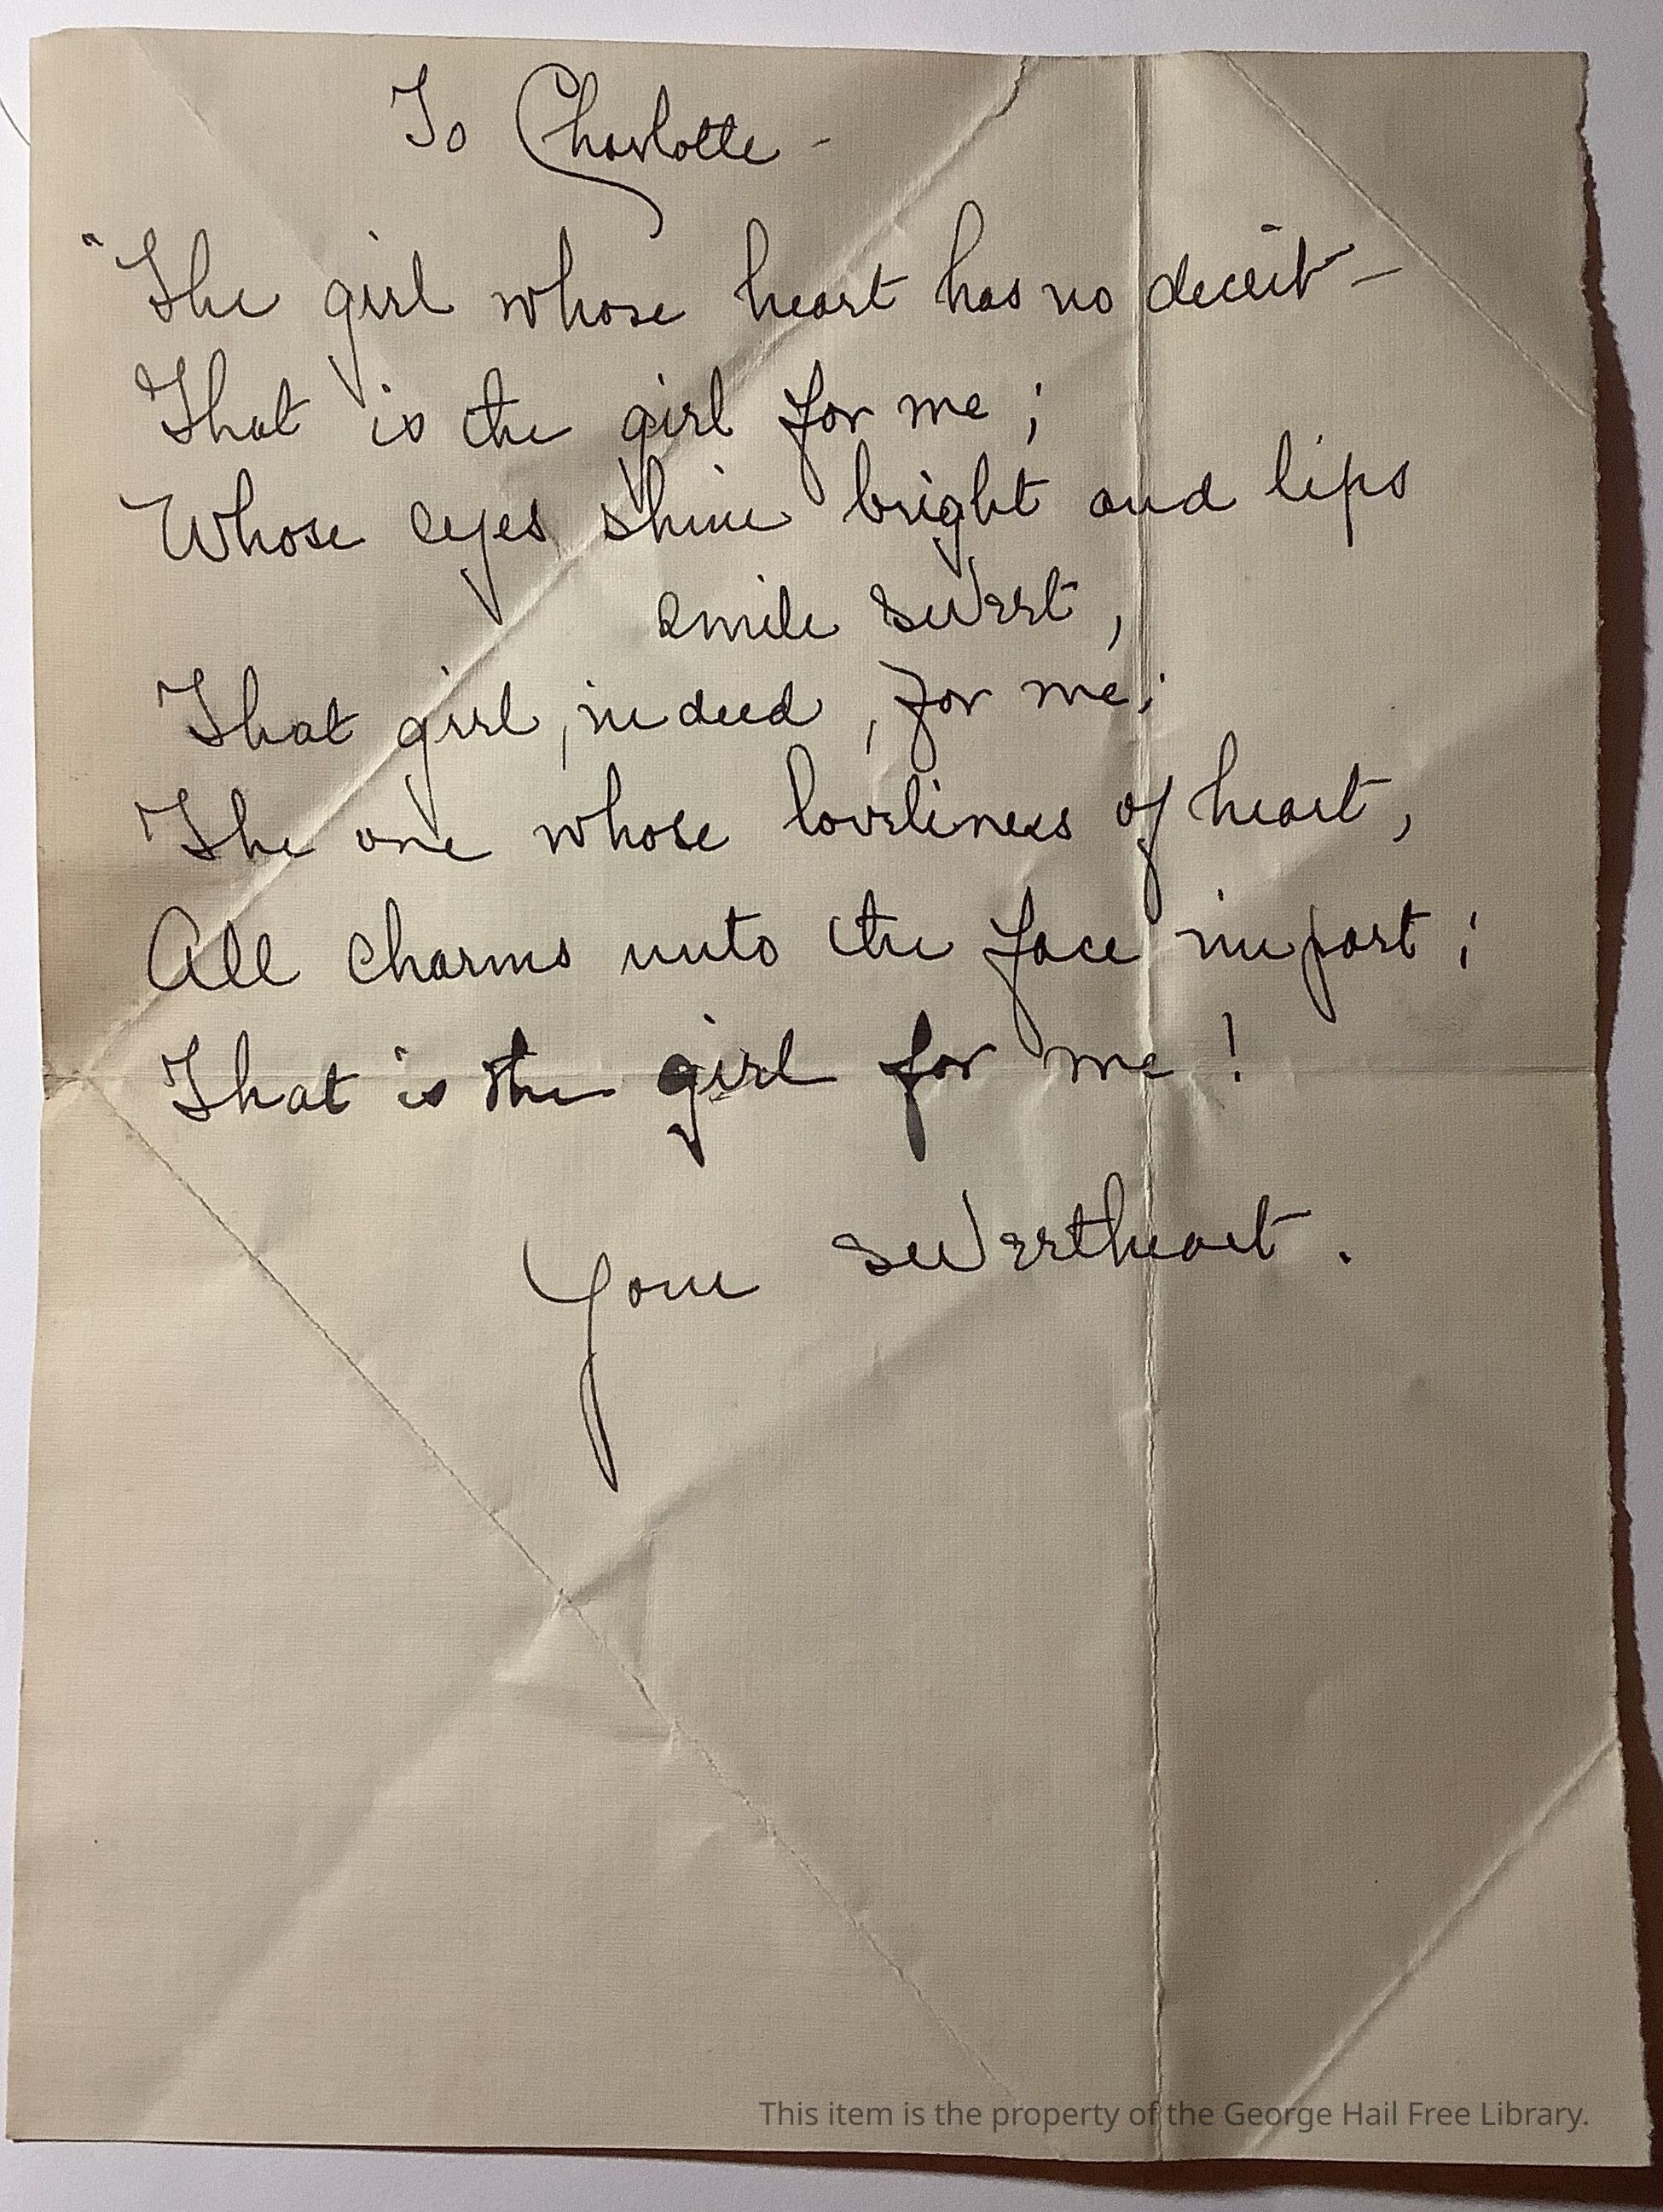 To Charlotte -
"The girl whose heart has no deceit -
That is the girl for me ;
Whose eyes shine bright and lips
smile sweet ,
That girl , indeed , for me ;
The one whose loveliness of heart ,
All charms unto the face impart ;
That is the girl for me !
Your sweetheart .
This item is the property of the George Hail Free Library.